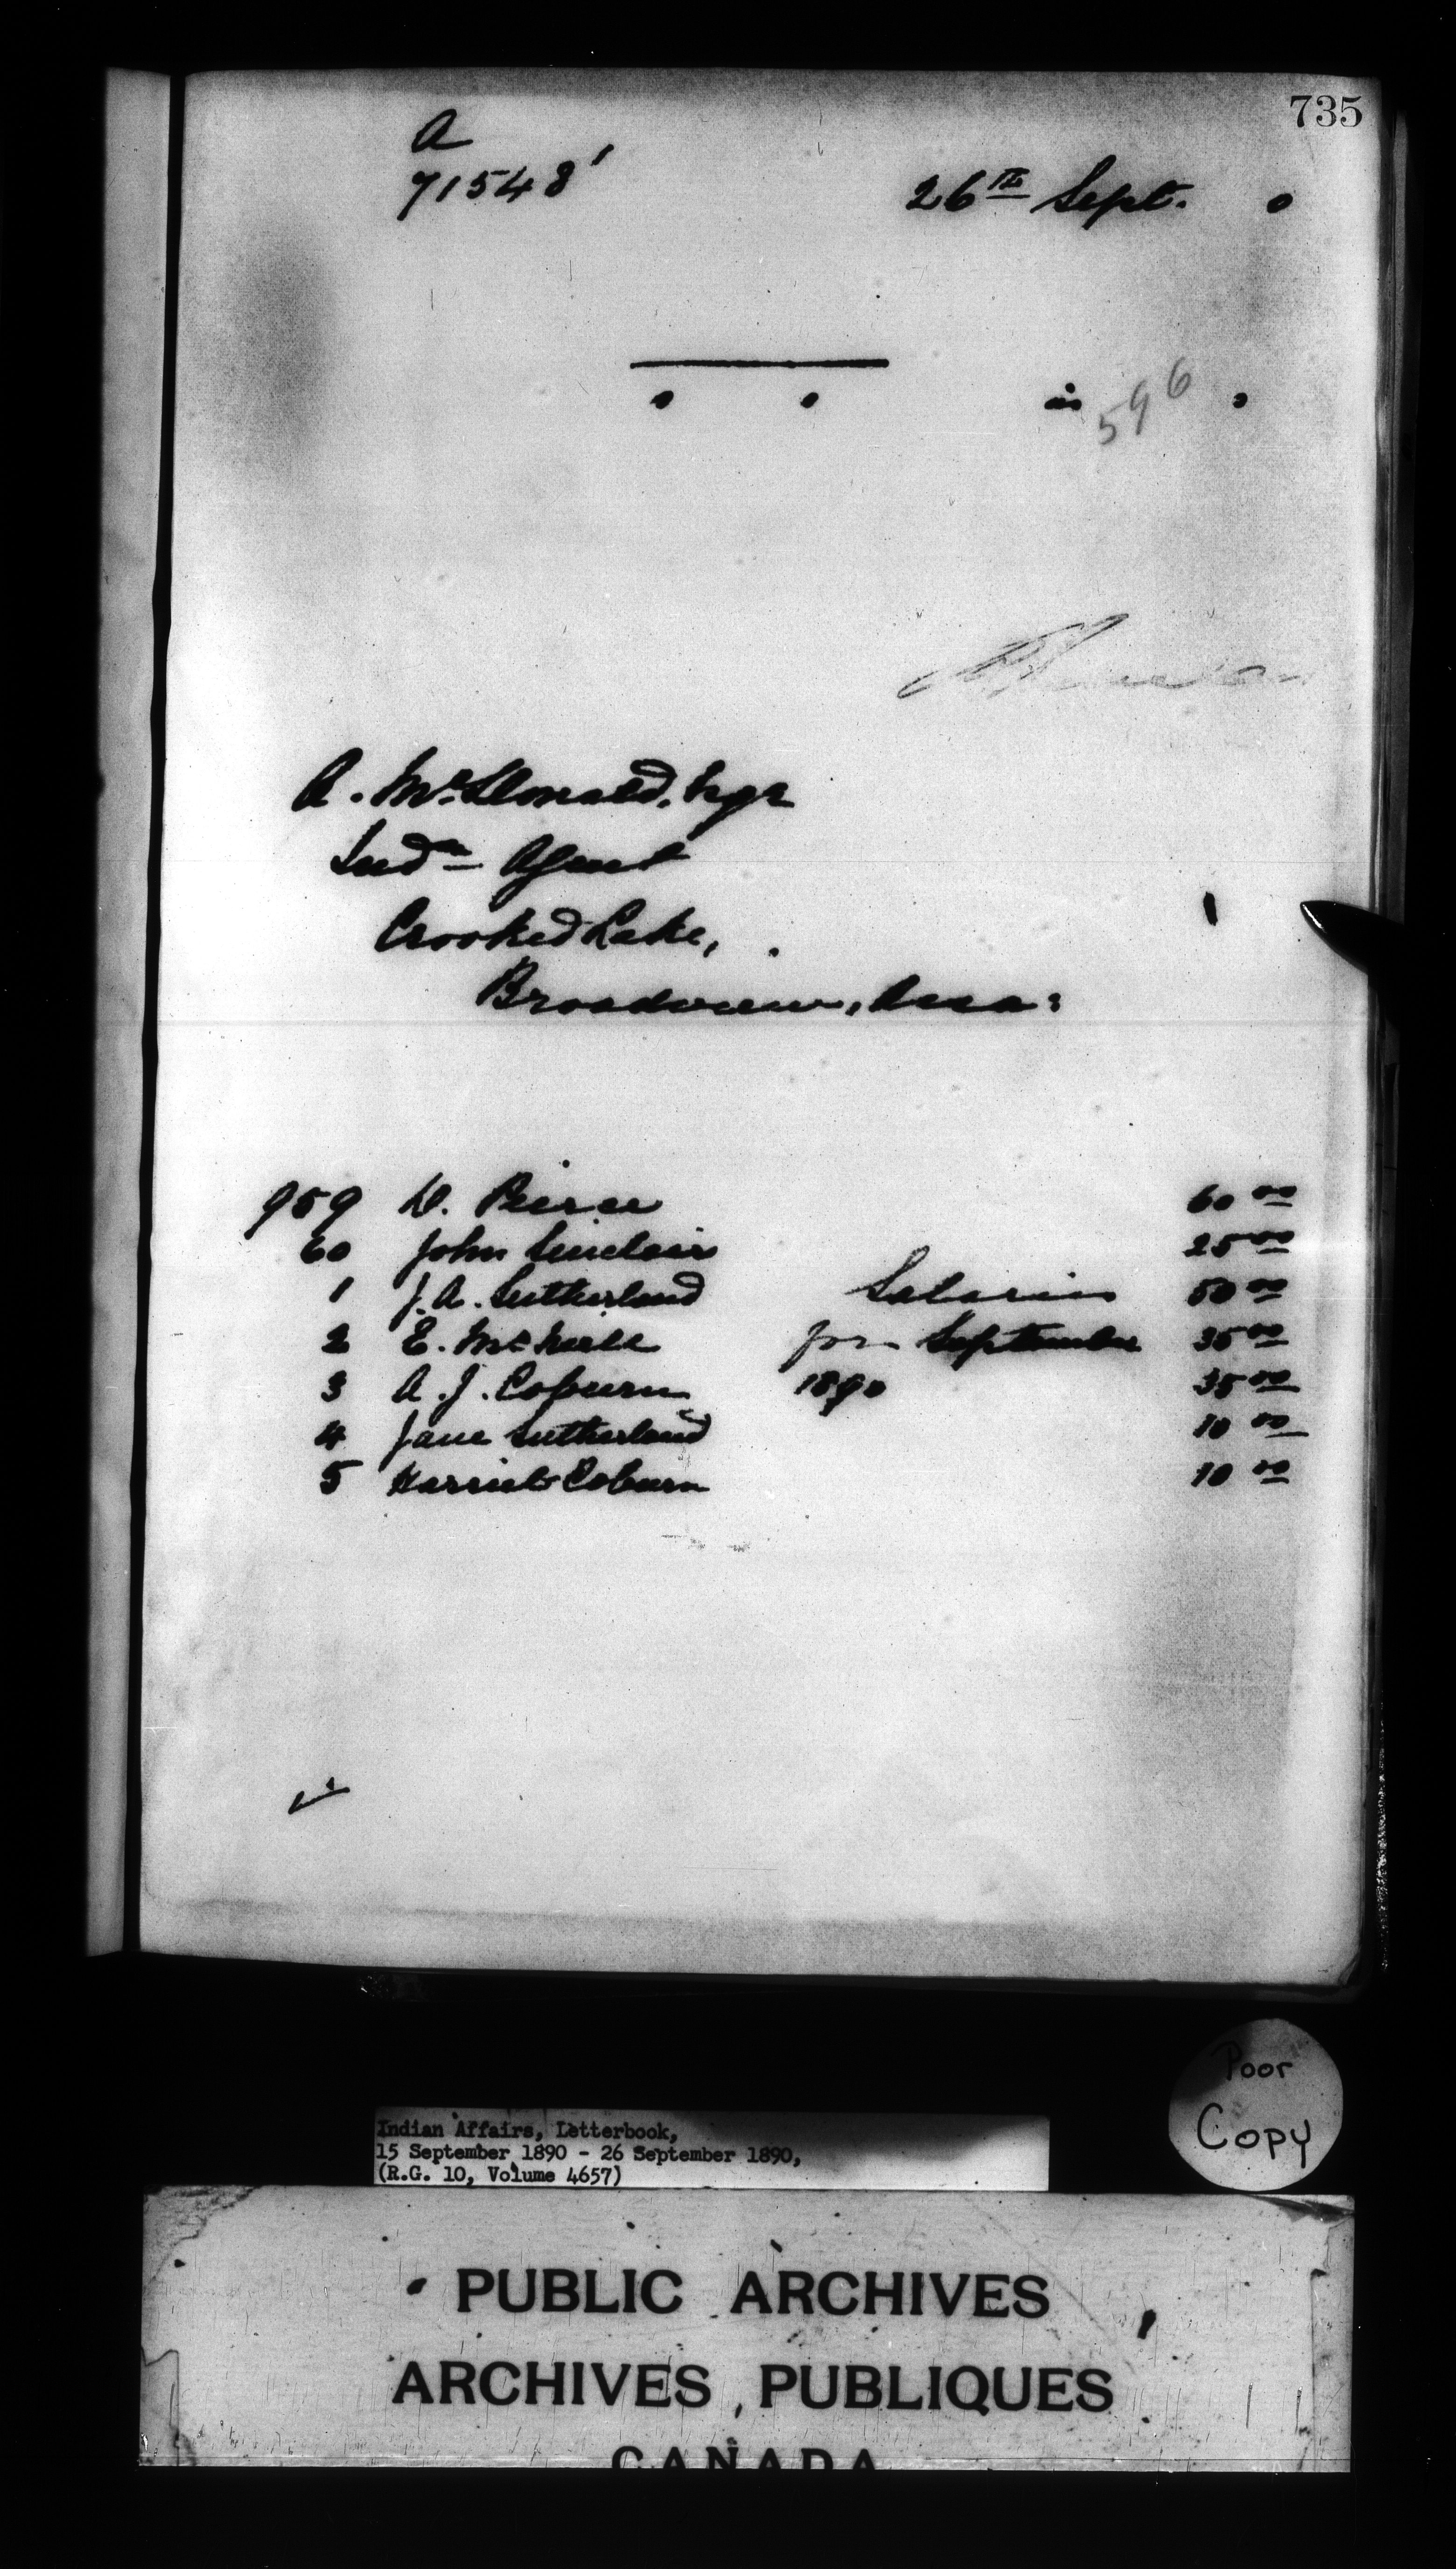 735
A
71548'
26th Sept. 0
596
A. McDonald, Esqr
Indn Agent
Crooked Lake,
Broadview, Assa:
959 D. Pierce 60 00
60 John Sinclair 25 00
1 J. A. Sutherland Salaries 50 00
2 E. McNeill for September 35 00
3 A. J. Coburn 1890 35 00
4 Jane Sutherland 10 00
5 Harriet Coburn 10 00
Poor
Copy
Indian Affairs, Letterbook,
15 September 1890 - 26 September 1890,
(R.G. 10, Volume 4657)
PUBLIC ARCHIVES
ARCHIVES PUBLIQUES
CANADA